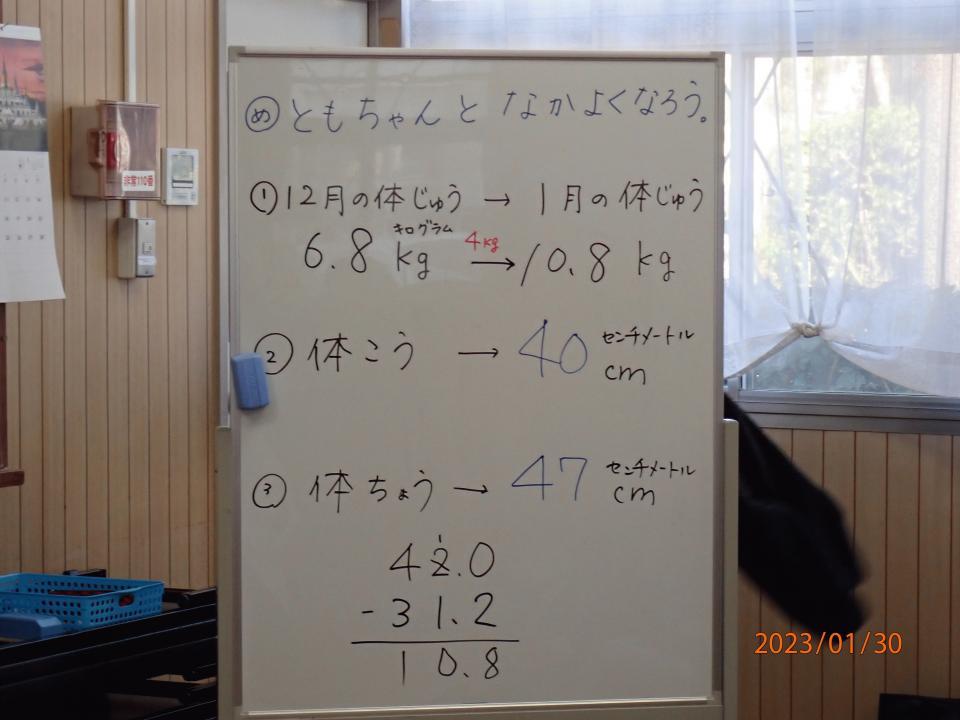 め ともちゃんと なかよくなろう。
① 12月の体じゅう → 1月の体じゅう
キログラム
6.8 kg 4kg → 10.8 kg
② 体こう → 40 センチメートル
cm
③ 体ちょう → 47 センチメートル
cm
1
42.0
-31.2
10.8
非常110番
2023/01/30